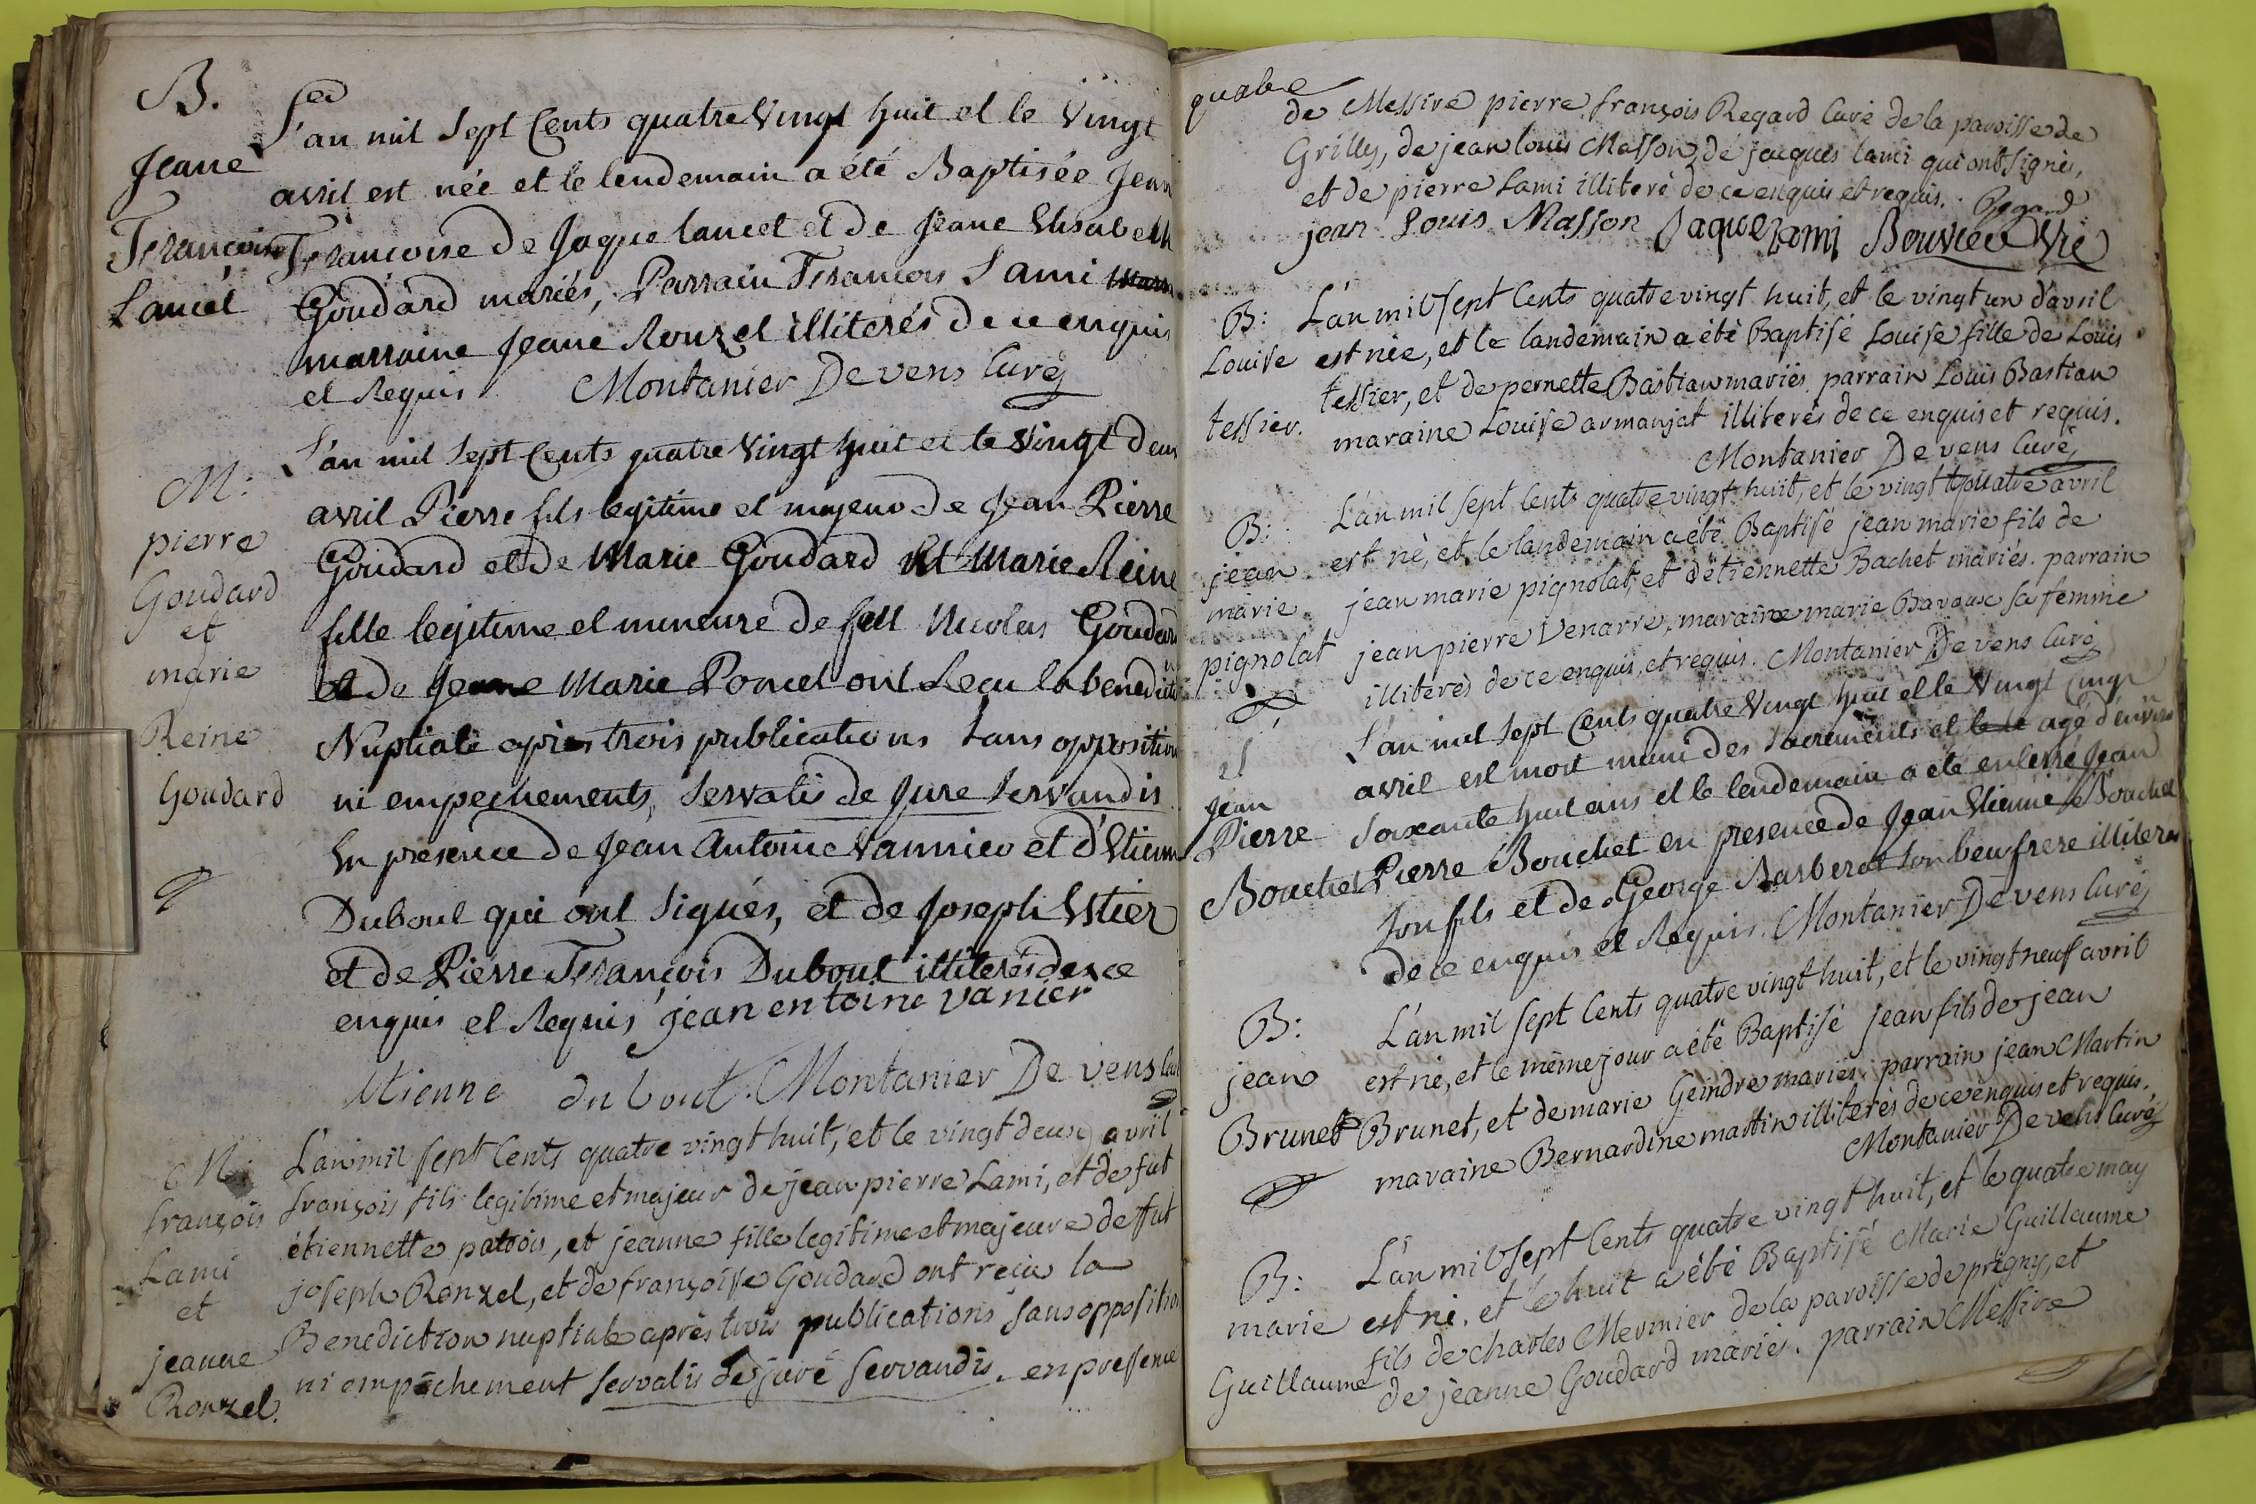 B.
Jeane
Francoise
Lancel
L'an mil Sept Cents quatre Vingt huit et le Vingt
avril est née et le lendemain a été Baptisée Jean
Francoise de Jaque lancel et de Jeane Elisabeth
Goudard mariés, Parrain Francois Lami
marraine Jeane Ronzel illiterés de ce enquis
et Requis Montanier Devens Curé
M:
pierre
Goudard
et
marie
Reine
Goudard
L'an mil Sept Cents quatre Vingt huit et le Vingt deux
avril Pierre fils legitime et majeur de Jean Pierre
Goudard et de Marie Goudard Et Marie Reine
fille legitime et mineure de feu Nicolas Goudard
et de Jeanne Marie Poncel ont Recu la benedicti
Nuptiale après trois publications Sans opposition
ni empechements, Servatis de Jure Servandis
En presence de Jean Antoine Vannier et d'Etienne
Duboul qui ont Signés, et de Joseph Estier
et de Pierre François Duboul illiterés de ce
enquis et Requis jean entoine vanier
Etienne duboul. Montanier Devens Curé
M:
françois
Lami
et
jeanne
Ronzel.
L'an mil sept Cents quatre vingt huit, et le vingt deux avril
françois fils legitime et majeur de jean pierre Lami, et de fut
étiennette patrois, et jeanne fille legitime et majeure de fut
joseph Ronzel, et de françoise Goudard ont reçu la
Benediction nuptiale après trois publications sans opposition
ni empêchement servatis de jure servandis. en presence
quabe
de Messire pierre françois Regard Curé de la paroisse de
Grilly, de jean louis Masson, de jacques lami qui ont signés,
et de pierre Lami illiteré de ce enquis et requis. Regard
jean Louis Masson Jaque Lami Bouvier Vic
B:
Louise
tessier.
L'an mil sept Cents quatre vingt huit, et le vingt un d'avril
est née, et le landemain a été Baptisé Louise fille de Louis
tessier, et de pernette Bastian mariés parrain Louis Bastian
maraine Louise armanjat illiterés de ce enquis et requis.
Montanier Devens Curé
B:
jean
marie
pignolat
L'an mil sept Cents quatre vingt huit, et le vingt quatre avril
est né, et le landemain a été Baptisé jean marie fils de
jean marie pignolat, et d'étiennette Bachet mariés. parrain
jean pierre Venarre, maraine marie Bavoux sa femme
illiterés de ce enquis, et requis. Montanier Devens Curé
Jean
Pierre
Bouchet
L'an mil Sept Cents quatre Vingt huit et le Vingt Cinq
avril est mort muni des Sacrements et agé d'environ
Soixante huit ans et le lendemain a été enterré Jean
Pierre Bouchet en presence de Jean Etienne Bouchet
Son fils et de George Barberat Son beufrere illiterés
de ce enquis et Requis. Montanier Devens Curé
B:
jean
Brunet
L'an mil sept Cents quatre vingt huit, et le vingt neuf avril
est né, et le même jour a été Baptisé jean fils de jean
Brunet, et de marie Geindre mariés. parrain jean Martin
maraine Bernardine martin illiterés de ce enquis et requis.
Montanier Devens Curé
B:
marie
Guillaume
L'an mil sept Cents quatre vingt huit, et le quatre may
est né. et le huit a été Baptisé Marie Guillaume
fils de charles Mermier de la paroisse de prégny, et
de jeanne Goudard mariés. parrain Messire